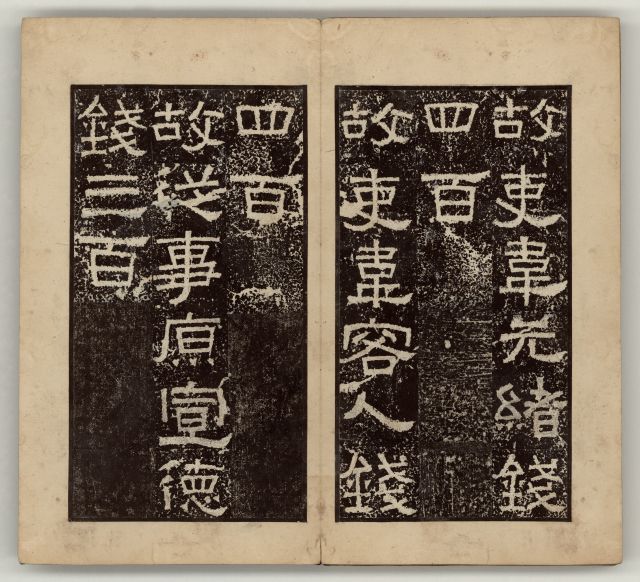 故吏韋元緒錢
四百
故吏韋客人錢
四百
故從事原宣德
錢三百